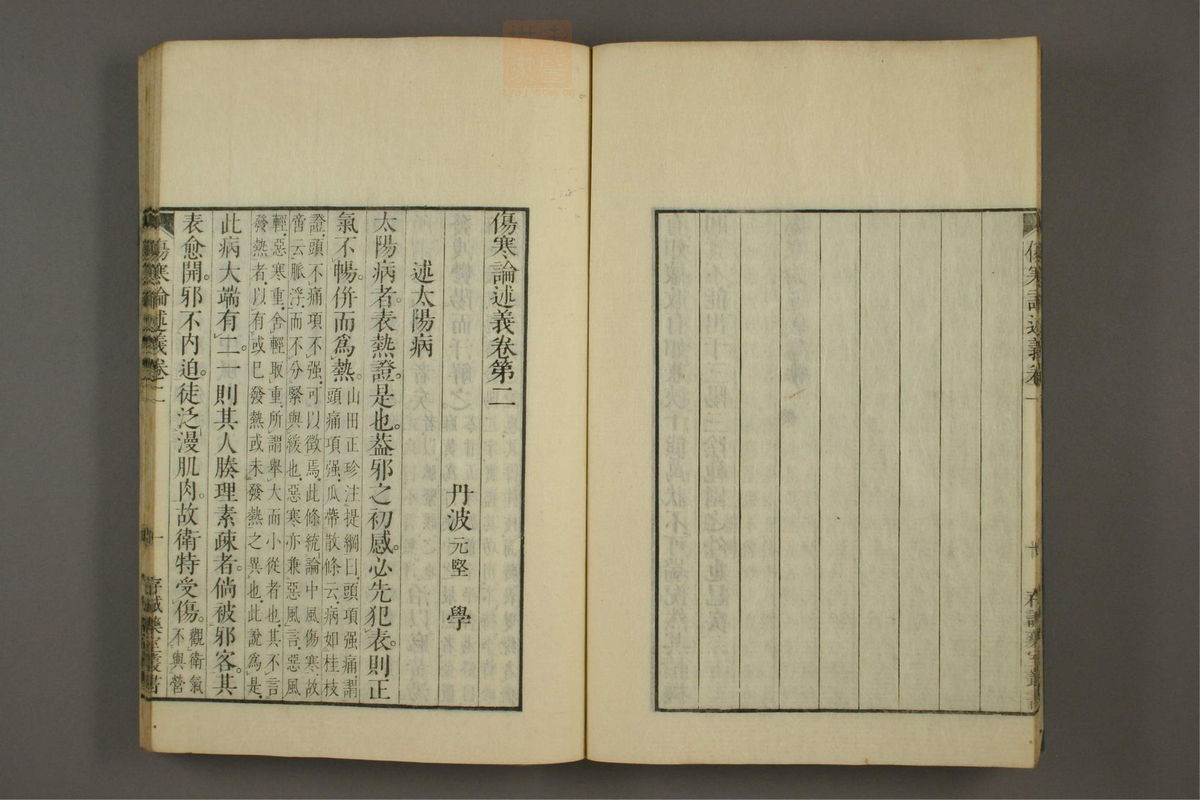 傷寒論述義卷一
十
存誠藥室叢書
傷寒論述義卷第二
丹波元堅 學
述太陽病
太陽病者。表熱證是也。葢邪之初感。必先犯表。則正
氣不暢。併而爲熱。
山田正珍注提綱曰、頭項强痛、謂
頭痛項强、瓜蔕散條云、病如桂枝
證、頭不痛、項不强、可以徵焉、此條統論中風傷寒、故
啻云脈浮、而不分緊與緩也、惡寒亦兼惡風言、惡風
輕、惡寒重、舍輕取重、所謂舉大而小從者也、其不言
發熱者、以有或已發熱、或未發熱之異也、此說爲是、
此病大端有二。一則其人腠理素疎者。倘被邪客。其
表愈開。邪不内迫。徒泛漫肌肉。故衛特受傷。
觀衛氣
不與營
傷寒論述義卷二
一
存誠藥室叢書